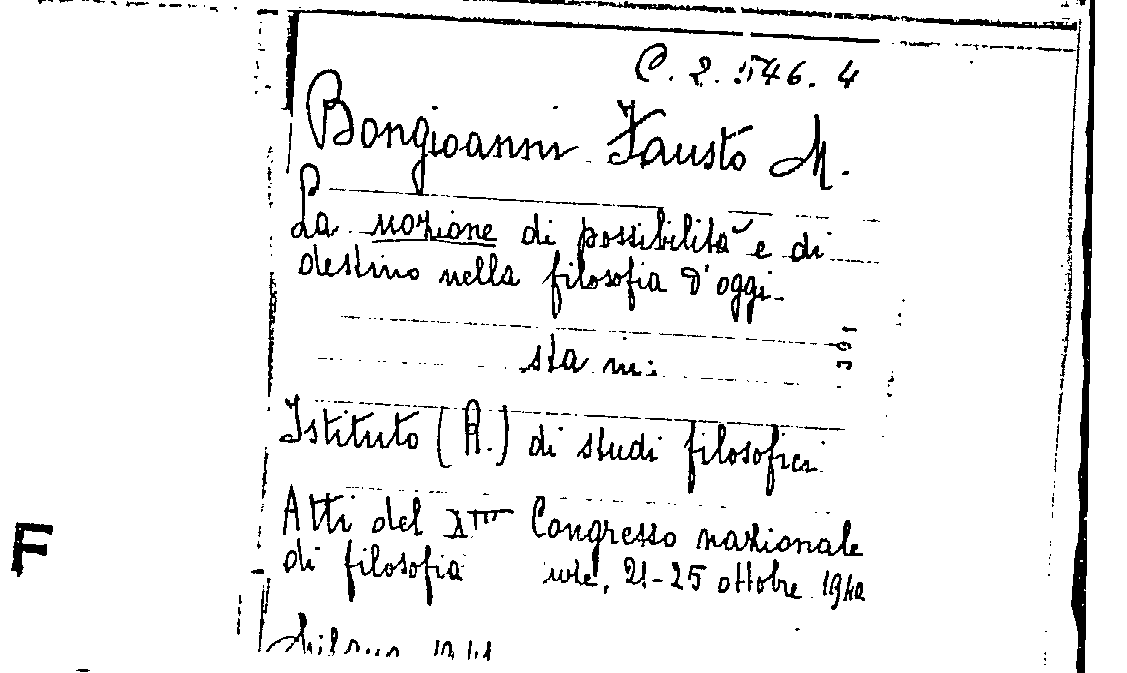 C. 2. 546. 4
Bongioanni Fausto M.
La nozione di possibilità e di
destino nella filosofia d'oggi.
301
sta in:
Istituto (R.) di studi filosofici
Atti del XIII Congresso nazionale
di filosofia 21-25 ottobre 1940
F